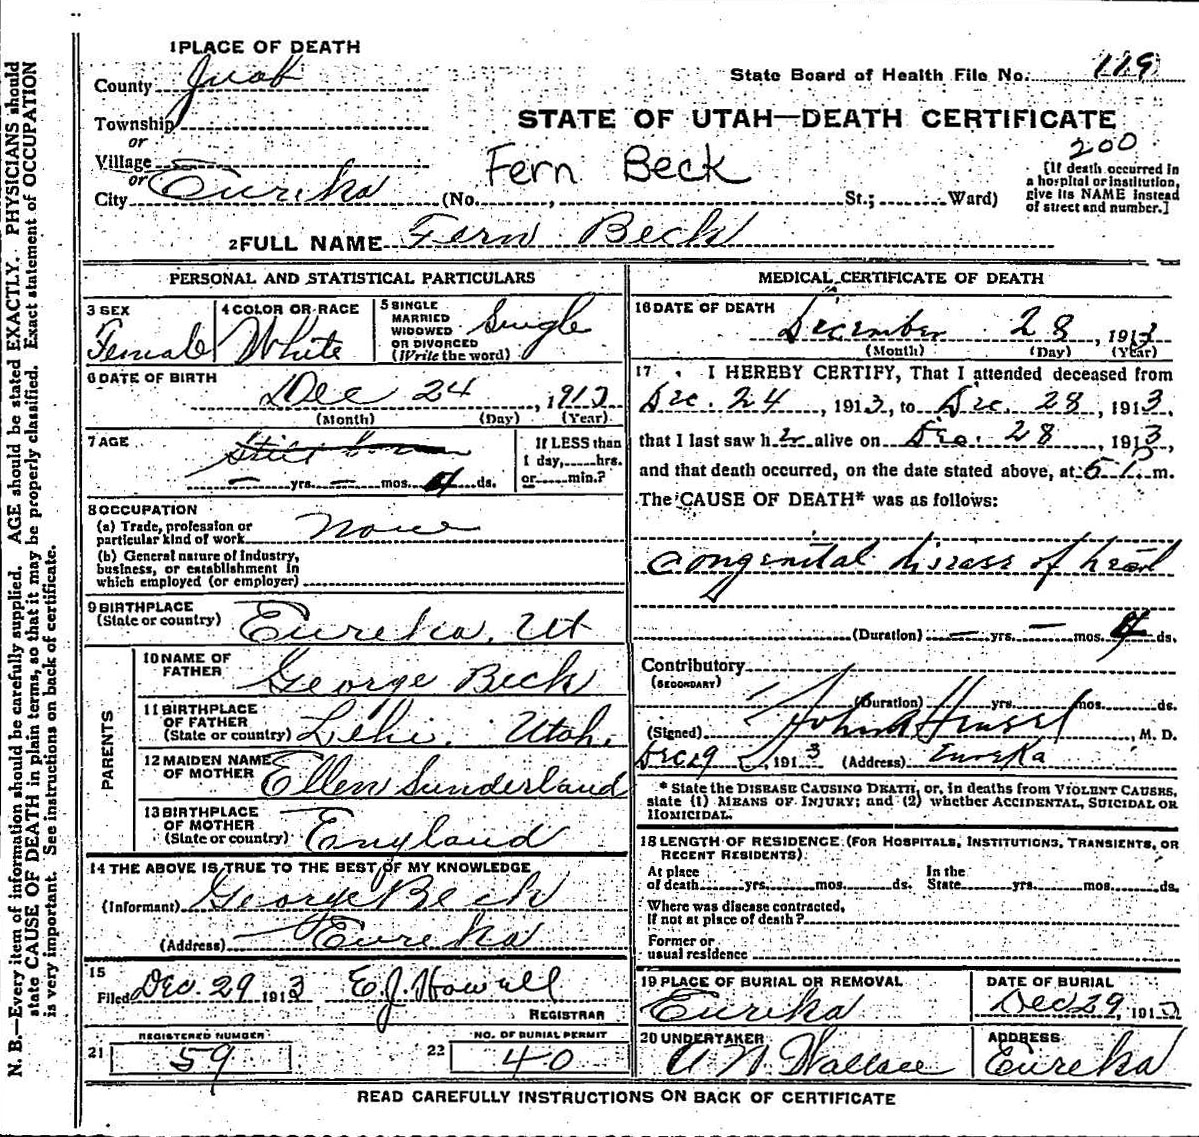 N. B.—Every item of information should be carefully supplied. AGE should be stated EXACTLY. PHYSICIANS should
state CAUSE OF DEATH in plain terms, so that it may be properly classified. Exact statement of OCCUPATION
is very important. See instructions on back of certificate.
1 PLACE OF DEATH
County Juab
State Board of Health File No. 119
Township
or
Village
or
City Eureka
STATE OF UTAH—DEATH CERTIFICATE
200
Fern Beck
(No. , St.; Ward)
[If death occurred in
a hospital or institution,
give its NAME instead
of street and number.]
2 FULL NAME Fern Beck
PERSONAL AND STATISTICAL PARTICULARS
3 SEX
Female
4 COLOR OR RACE
White
5 SINGLE
MARRIED
WIDOWED
OR DIVORCED
(Write the word)
Single
6 DATE OF BIRTH
Dec 24, 1913
(Month) (Day) (Year)
7 AGE
Still born
— yrs. — mos. 4 ds.
If LESS than
1 day, hrs.
or min.?
8 OCCUPATION
(a) Trade, profession or
particular kind of work None
(b) General nature of Industry,
business, or establishment in
which employed (or employer)
9 BIRTHPLACE
(State or country) Eureka, Ut
PARENTS
10 NAME OF
FATHER George Beck
11 BIRTHPLACE
OF FATHER
(State or country) Lehi. Utah.
12 MAIDEN NAME
OF MOTHER Ellen Sunderland
13 BIRTHPLACE
OF MOTHER
(State or country) England
14 THE ABOVE IS TRUE TO THE BEST OF MY KNOWLEDGE
(Informant) George Beck
(Address) Eureka
15
Filed Dec. 29 1913 E. J. Howell
REGISTRAR
REGISTERED NUMBER
21 59
NO. OF BURIAL PERMIT
22 40
MEDICAL CERTIFICATE OF DEATH
16 DATE OF DEATH
December 28, 1913
(Month) (Day) (Year)
17 I HEREBY CERTIFY, That I attended deceased from
Dec. 24, 1913, to Dec. 28, 1913,
that I last saw h er alive on Dec. 28, 1913,
and that death occurred, on the date stated above, at 6 P m.
The CAUSE OF DEATH* was as follows:
Congenital disease of heart
(Duration) — yrs. — mos. 4 ds.
Contributory
(SECONDARY)
(Duration) yrs. mos. ds.
(Signed) John , M. D.
Dec 29 1913 (Address) Eureka
* State the DISEASE CAUSING DEATH, or, in deaths from VIOLENT CAUSES,
state (1) MEANS OF INJURY; and (2) whether ACCIDENTAL, SUICIDAL OR
HOMICIDAL.
18 LENGTH OF RESIDENCE (FOR HOSPITALS, INSTITUTIONS, TRANSIENTS, OR
RECENT RESIDENTS)
At place
of death yrs. mos. ds.
In the
State yrs. mos. ds.
Where was disease contracted,
if not at place of death?
Former or
usual residence
19 PLACE OF BURIAL OR REMOVAL
Eureka
DATE OF BURIAL
Dec 29, 1913
20 UNDERTAKER
A. N. Wallace
ADDRESS
Eureka
READ CAREFULLY INSTRUCTIONS ON BACK OF CERTIFICATE